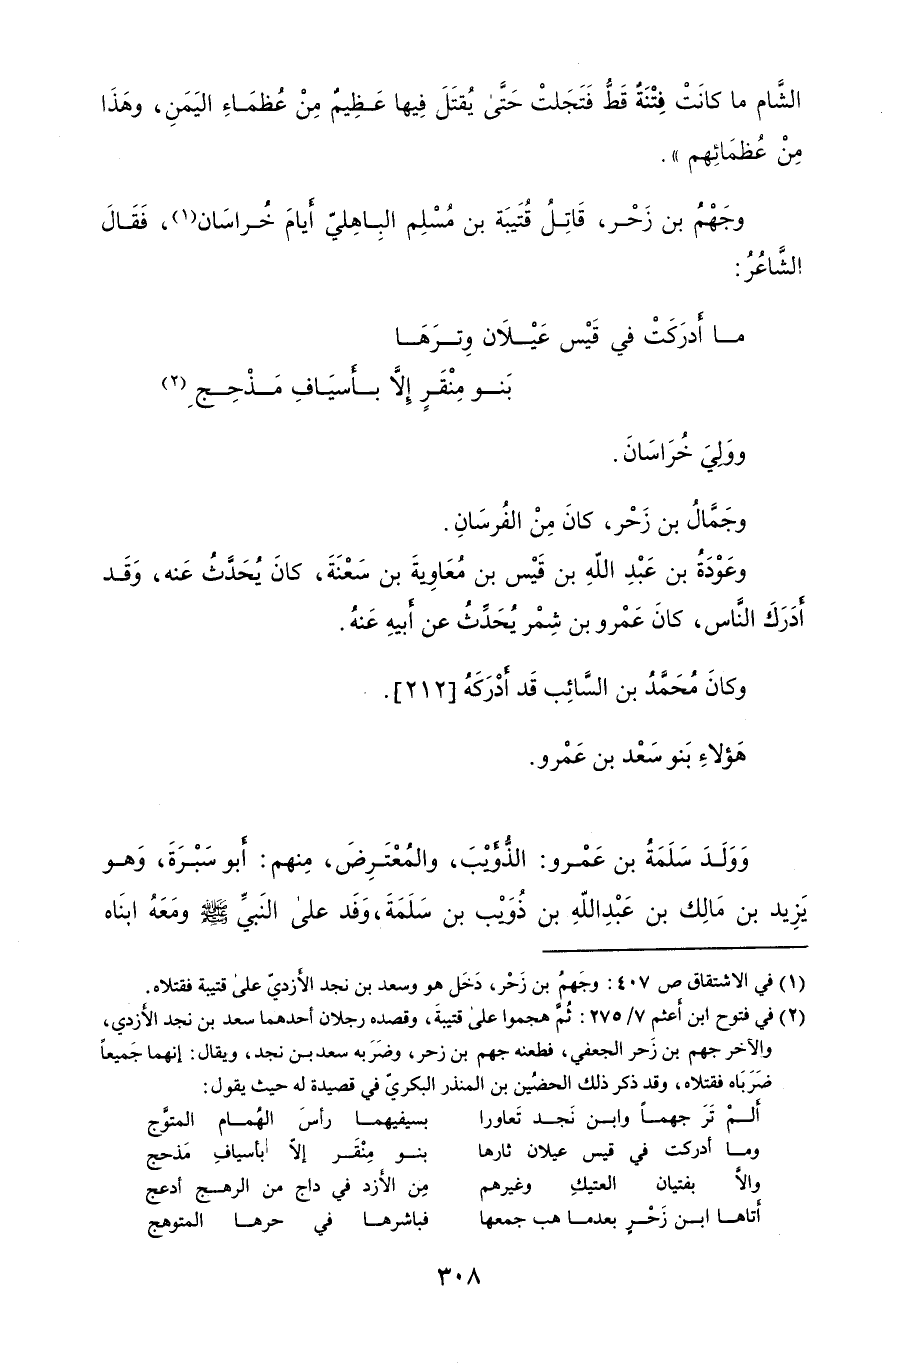 الشَّام ما كانَتْ فِتْنَةٌ قَطُّ فَتَجَلتْ حَتَّىٰ يُقتَلَ فِيها عَـظِيمٌ مِنْ عُظمَـاءِ اليَمَنِ، وهَذَا
مِنْ عُظمَائِهم».
وجَهْمُ بن زَحْـر، قَاتِـلُ قُتَيبَة بن مُسْلِم البـاهِليّ أَيامَ خُـراسَان(١)، فَقَـالَ
الشَّاعُرُ:
مـا أَدرَكَتْ في قَيْس عَيْـلَان وِتـرَهَـا
بَنـو مِنْقَـرٍ إِلَّا بـأَسيَـافِ مَـذْحِـج ِ(٢)
ووَلِيَ خُرَاسَانَ.
وجَمَّالُ بن زَحْر، كانَ مِنْ الفُرسَانِ.
وعَوْدَةُ بن عَبْدِ اللّهِ بن قَيْس بن مُعَاوِيةَ بن سَعْنَةَ، كانَ يُحَدَّثُ عَنه، وَقَـد
أَدَرَكَ النَّاس، كانَ عَمْرو بن شِمْر يُحَدِّثُ عن أَبيهِ عَنهُ.
وكانَ مُحَمَّدُ بن السَّائِب قَد أَدْرَكَهُ [٢١٢].
هَؤلاءِ بَنو سَعْد بن عَمْرو.
وَوَلَـدَ سَلَمَةُ بن عَمْـرو: الذُّؤَيْبَ، والمُعْتَـرِضَ، مِنهم: أَبو سَبْـرَةَ، وَهـو
يَزِيد بن مَالِك بن عَبْدِاللّهِ بن ذُوَيْب بن سَلَمَةَ، وَفَد علىٰ النَبيِّ ﷺ ومَعَهُ ابنَاه
(١) في الاشتقاق ص ٤٠٧: وجَهمُ بن زَحْر، دَخَل هو وسعد بن نجد الأزديّ علىٰ قتيبة فقتلاه.
(٢) في فتوح ابن أعثم ٢٧٥/٧: ثُمَّ هجموا علىٰ قتيبةَ، وقصده رجلان أحدهما سعد بن نجد الأزدي،
والآخر جهم بن زَحر الجعفي، فطعنه جهم بن زحر، وضرَبه سعد بن نجد، ويقال: إنهما جَميعاً
ضَرَبَاه فقتلاه، وقد ذكر ذلك الحضَين بن المنذر البكريّ في قصيدة له حيث يقول:
أَلـمْ تَرَ جهمـاً وابـن نَجـد تَعاورا بسيفيهمـا رأسَ الهُمـام المتوَّج
ومـا أدركت في قيس عيلان ثارها بنـو مِنْقَـر إلاّ بأسيافِ مَذحج
والاَّ بفتيان العتيكِ وغيرهم مِن الأزد في داج من الرهـج أدعج
أتاهـا ابـن زَحْـرٍ بعدمـا هب جمعها فباشرهـا في حرهـا المتوهج
٣٠٨